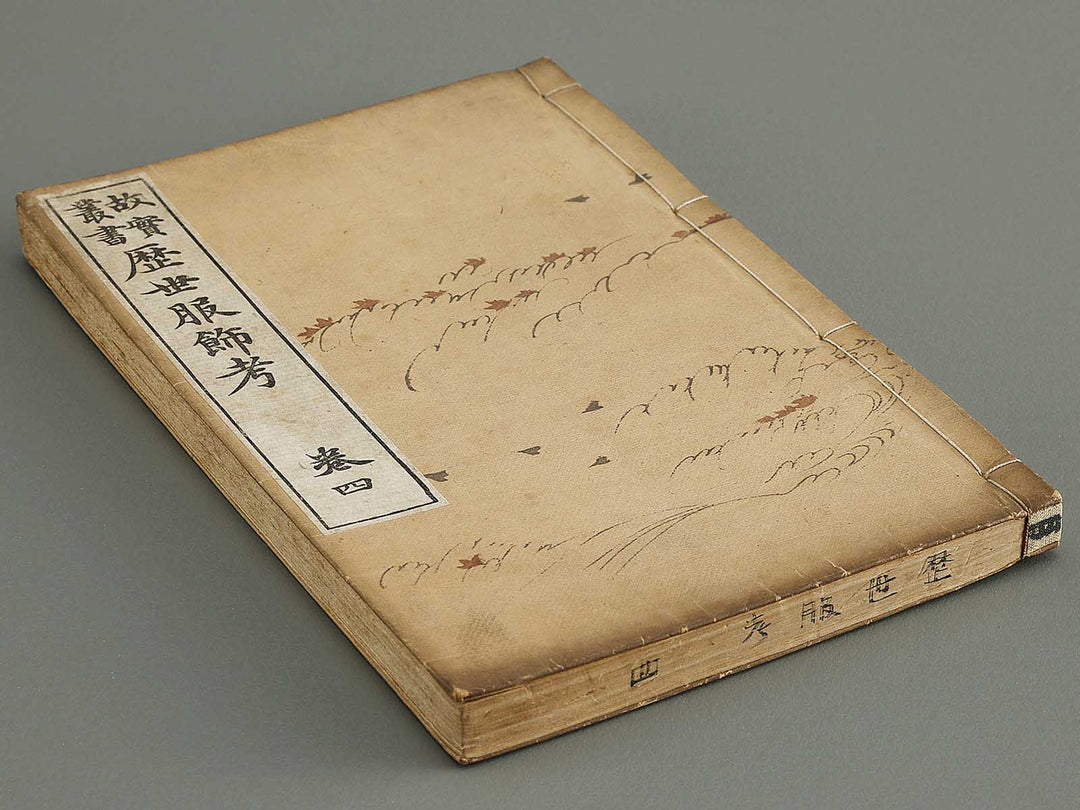 故實
叢書
歴世服飾考
卷四
歴世服
四